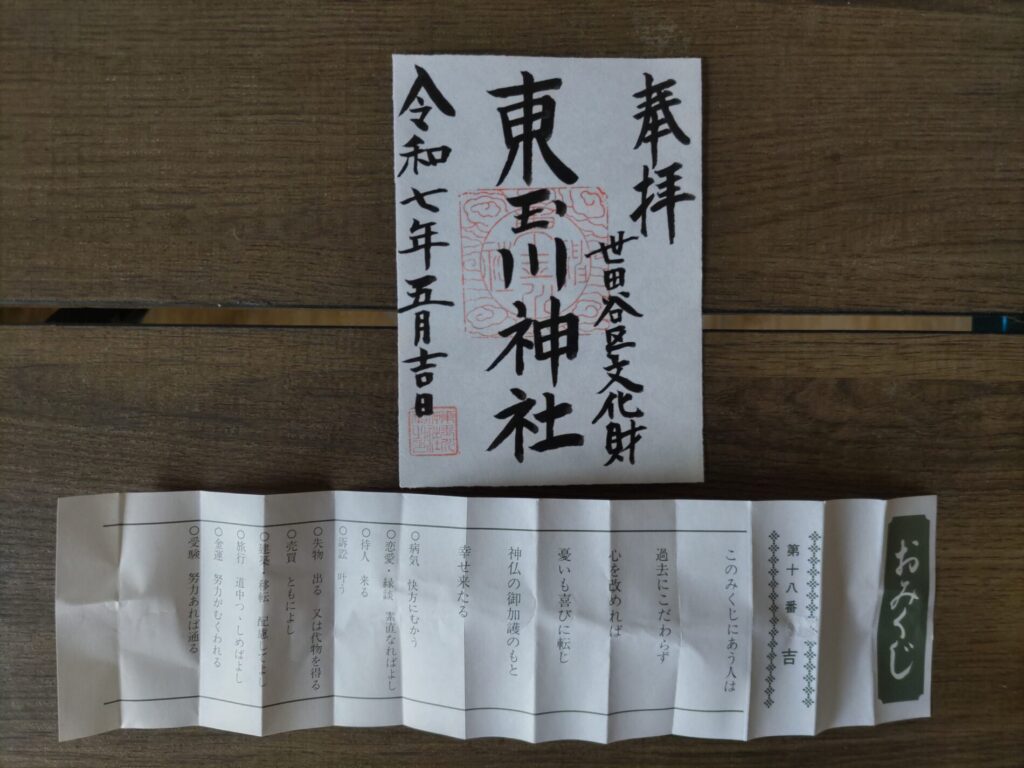 奉拝
世田谷区文化財
東玉川神社
令和七年五月吉日
おみくじ
第十八番 吉
このみくじにあう人は
過去にこだわらず
心を改めれば
憂いも喜びに転じ
神仏の御加護のもと
幸せ来たる
○病気 快方にむかう
○恋愛・縁談 素直なればよし
○待人 来る
○訴訟 叶う
○失物 出る 又は代物を得る
○売買 ともによし
○建築・移転 配慮してよし
○旅行 道中つゝしめばよし
○金運 努力がむくわれる
○受験 努力あれば通る